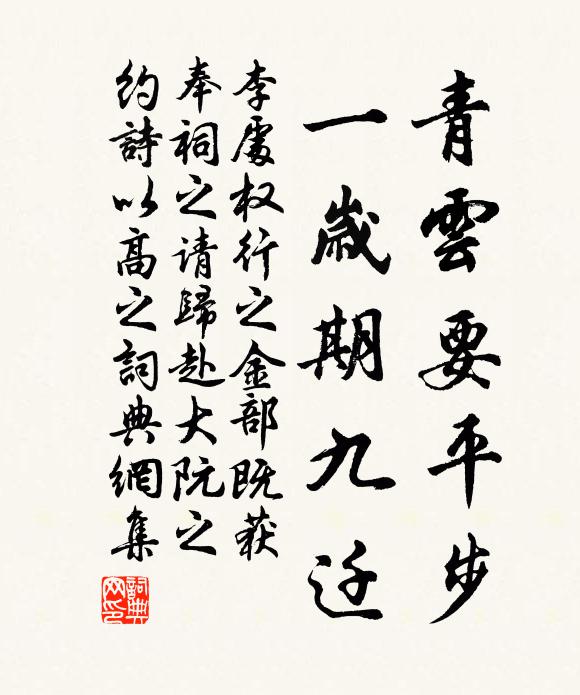 青雲要平步
一歲期九迁
李處权行之金部既获
奉祠之请歸赴大阮之
约詩以高之詞典網集
詞典網印